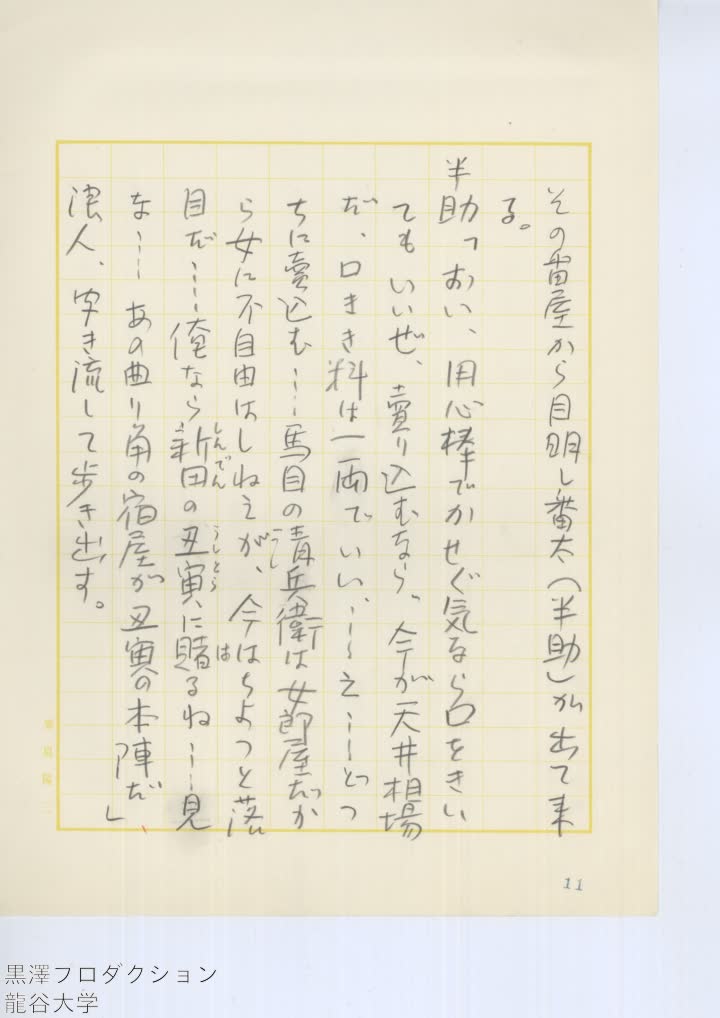 その番屋から目明し番太（半助）が出て来
る。
半助「おい、用心棒でかせぐ気なら口をきい
てもいいぜ、賣り込むなら、今が天井相場
だ、口きき料は一両でいい、……え……どつ
ちに賣込む……馬目の清兵衛は女郎屋だか
ら女に不自由はしねえが、今はちょっと落
目だ……俺なら新田の丑寅に賭るね……見
な……あの曲り角の宿屋が丑寅の本陣だ」
浪人、字き流して歩き出す。
しんでん
うしとら
は
11
黒澤プロダクション
龍谷大学